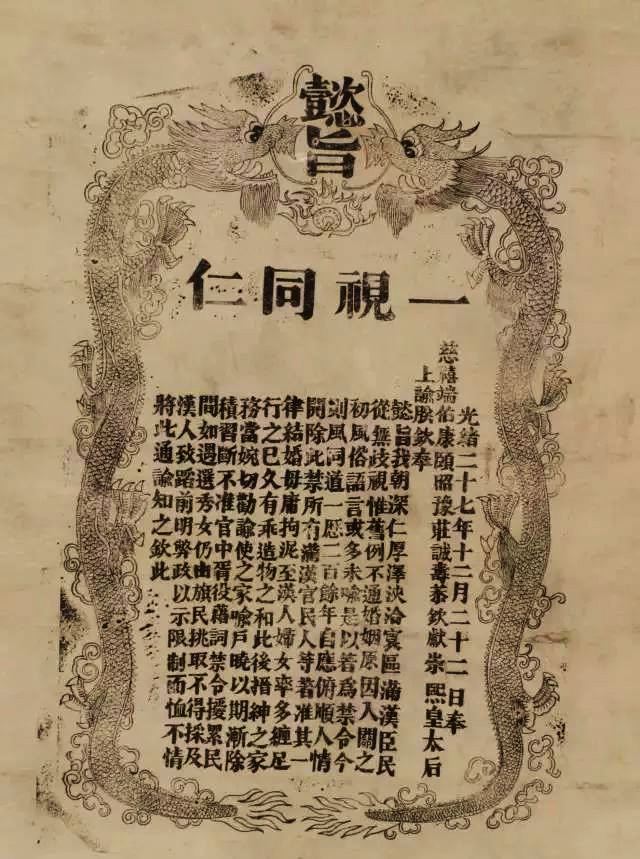 懿旨
一視同仁
光緒二十七年十二月二十二日奉
慈禧端佑康頤昭豫莊誠壽恭欽獻崇熙皇太后
上諭朕欽奉
懿旨我朝深仁厚澤浹洽寰區滿漢臣民
從無歧視惟舊例不通婚姻原因入關之
初風俗語言或多未喻是以著爲禁令今
則風同道一厯二百餘年自應俯順人情
開除此禁所有滿漢官民人等著准其一
律結婚毋庸拘泥至漢人婦女率多纏足
行之已久有乖造物之和此後搢紳之家
務當婉切勸諭使之家喻戶曉以期漸除
積習斷不准官中胥役藉詞禁令擾累民
間如遇選秀女仍由旗民挑取不得採及
漢人致蹈前明弊政以示限制而恤不情
將此通諭知之欽此